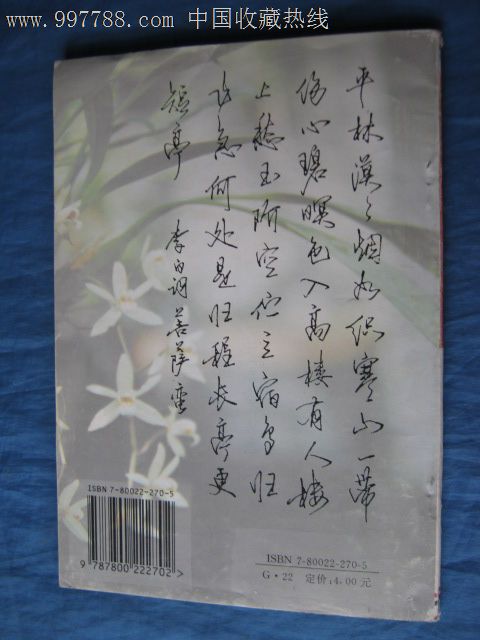 www.997788.com 中国收藏热线
平林漠々烟如织寒山一带
伤心碧暝色入高楼有人楼
上愁玉阶空伫立宿鸟归
飞急何处是归程长亭更
短亭 李白词菩萨蛮
ISBN 7-80022-270-5
9 787800 222702 >
ISBN 7-80022-270-5
G·22 定价:4.00元